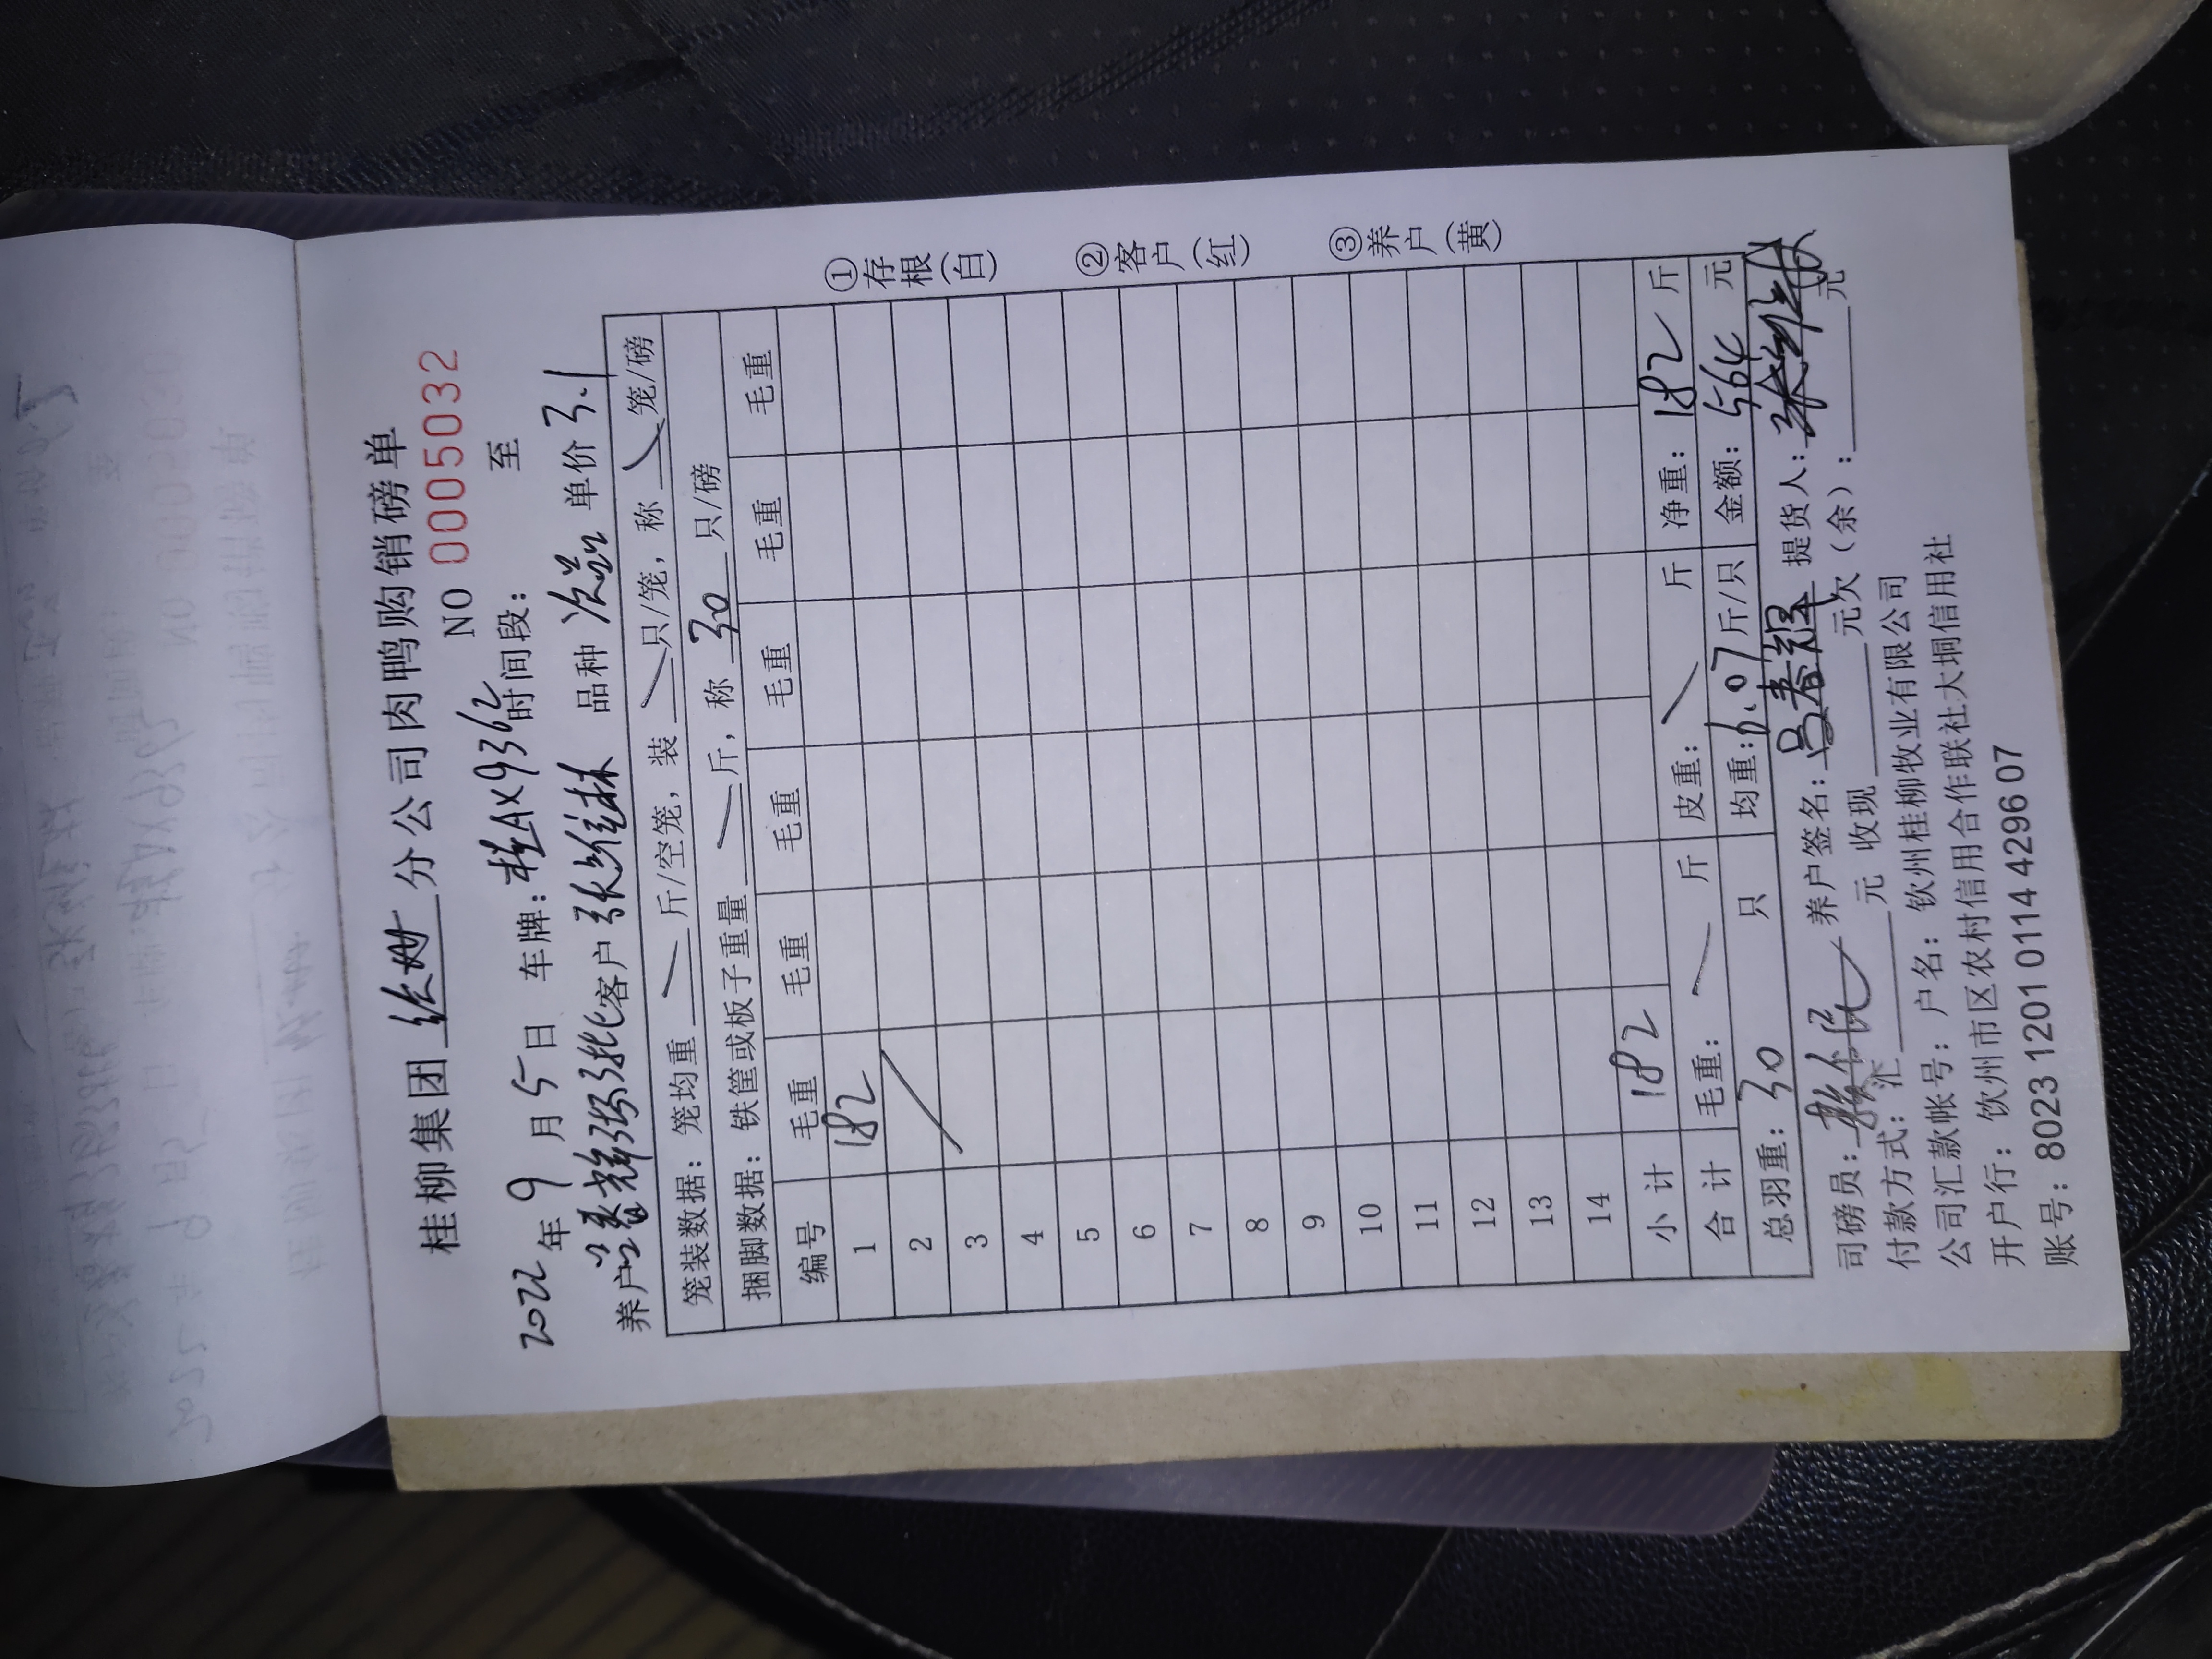 桂柳集团 分公司肉鸭购销磅单
NO 0005032
2022年9月5日 车牌:桂AX9362 时间段: 至
养户 客户 张维林 品种 次品 单价 3.1
笼装数据: 笼均重 斤/空笼, 装 只/笼, 称 笼/磅
捆脚数据: 铁筐或板子重量 斤, 称 30 只/磅
编号 毛重 毛重 毛重 毛重 毛重 毛重
1 182
2
3
4
5
6
7
8
9
10
11
12
13
14
小计 182
合计 毛重: 斤 皮重: 斤 净重: 182 斤
总羽重: 30 只 均重: 6.07 斤/只 金额: 564 元
司磅员: 养户签名: 吕春辉 提货人:
付款方式: 汇 元 收现 元欠(余): 元
公司汇款帐号: 户名: 钦州桂柳牧业有限公司
开户行: 钦州市区农村信用合作联社大垌信用社
账号: 8023 1201 0114 4296 07
①存根(白)
②客户(红)
③养户(黄)